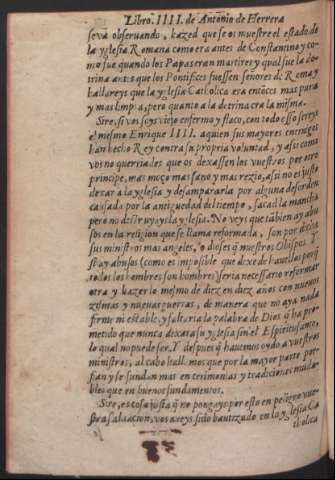 Libro. IIII. de Antonio de Herrera
seva observando, hazed que se os muestre el estado de
la yglesia Romana como era antes de Constantino y co-
mo fue quando los Papas eran martires y qual fue la do-
trina antes que los Pontifices fuessen señores de Roma y
hallareys que la yglesia Catholica era entōces mas pura
y mas limpia, pero quanto a la doctrina era la misma.
Sire, si vos soys viejo enfermo y flaco, con todo esso sereys
el mesmo Enrique IIII. a quien sus mayores enemigos
han hecho Rey contra su propria voluntad, y assi como
vos no querriades que os dexassen los vuestros por otro
principe, mas moço mas sano y mas rezio, assi no es justo
dexar a la yglesia y desampararla por alguna desorden
causada por la antiguedad del tiempo, sacad la mancha
pero no destruyays la yglesia. No veys que tābien ay abu
sos en la religion que se llama reformada, son por dicha
sus ministros mas angeles, o dioses q̄ nuestros Obispos. Y
si ay abusos (como es imposible que dexe de hauellos porq̄
todos los hombres son hombres) seria necessario reformar
otra y hazer lo mesmo de diez en diez años con nuevas
zismas y nuevas guerras, de manera que no aya nada
firme ni estable, y faltaria la palabra de Dios q̄ ha pro-
metido que nunca dexara su yglesia sin el Espiritu sancto,
lo qual no puede ser. Y despues q̄ havemos oydo a vuestros
ministros, al cabo hallamos que por la mayor parte por-
fian y se fundan mas en ceremonias y tradiciones muda-
bles que en buenos fundamentos.
Sire, es cosa justa q̄ no pongays por esto en peligro vue-
stra salvacion, vos aveys sido bautizado en la yglesia Ca
tholica